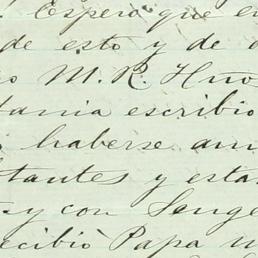 Espero que en
de esto y de
M. R.
tania escribio
haberse am
tantes y esta
y con
ecibiò Papa